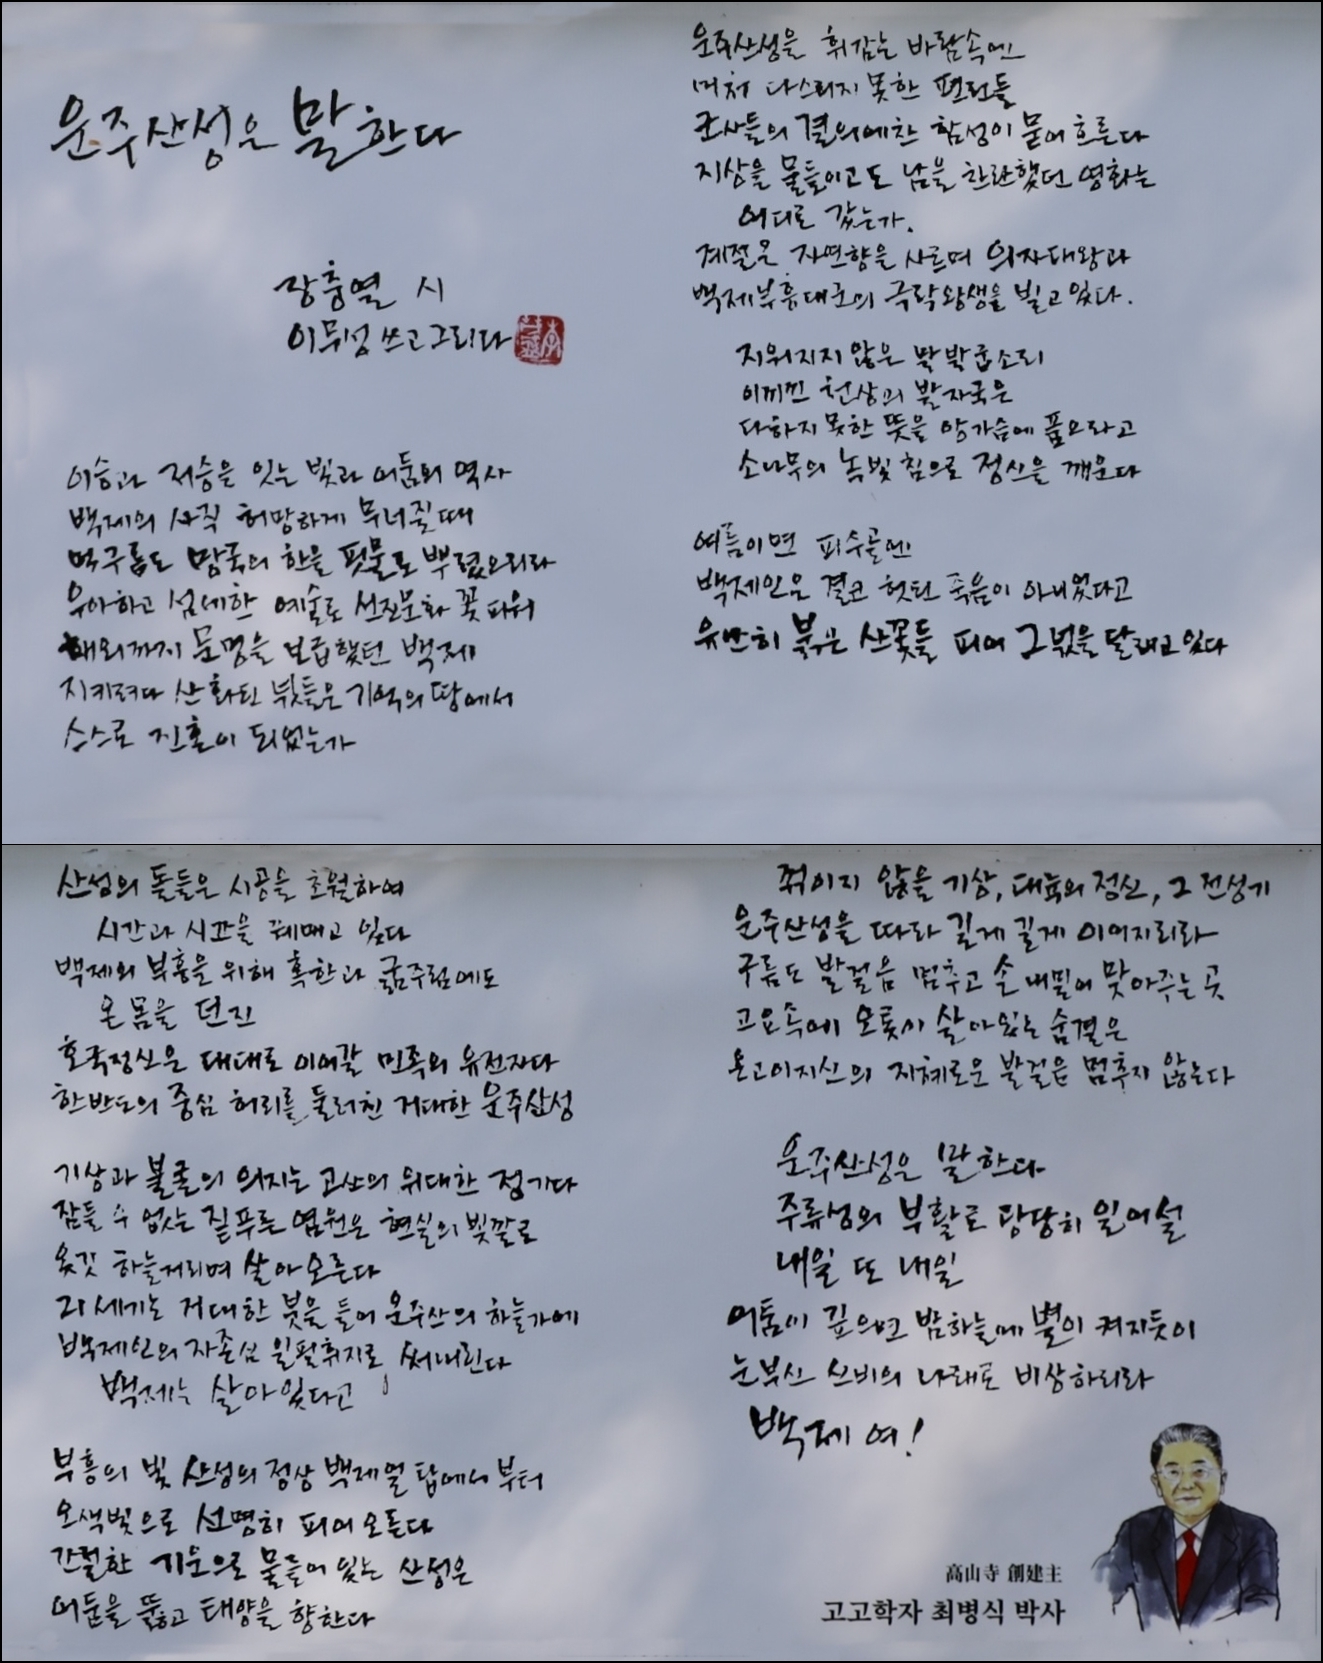 운주산성은 말한다
장충열 시
이무성 쓰고 그리다
이승과 저승을 잇는 빛과 어둠의 역사
백제의 사직 허망하게 무너질때
먹구름도 망국의 한을 핏물로 뿌렸으리라
우아하고 섬세한 예술로 선진문화 꽃 피워
해외까지 문명을 보급했던 백제
지키려다 산화된 넋들은 기억의 땅에서
스스로 진혼이 되었는가
운주산성을 휘감는 바람속에
미처 다스리지 못한 편린들
군사들의 결의에찬 함성이 묻어 흐른다
지상을 물들이고도 남을 찬란했던 영화는
어디로 갔는가.
계절은 자연향을 사르며 의자대왕과
백제부흥대군의 극락왕생을 빌고 있다.
지워지지 않은 말발굽소리
이끼낀 천상의 발자국은
다하지 못한 뜻을 앙가슴에 품으라고
소나무의 녹빛 침으로 정신을 깨운다
여름이면 피수골엔
백제인은 결코 헛된 죽음이 아니었다고
유난히 붉은 산꽃들 피어 그 넋을 달래고 있다
산성의 돌들은 시공을 초월하여
시간과 시간을 꿰매고 있다
백제의 부흥을 위해 혹한과 굶주림에도
온 몸을 던진
호국정신은 대대로 이어갈 민족의 유전자다
한반도의 중심 허리를 둘러친 거대한 운주산성
기상과 불굴의 의지는 고산의 위대한 정기다
잠들 수 없는 짙푸른 염원은 현실의 빛깔로
옷깃 하늘거리며 살아 오른다
21세기는 거대한 붓을 들어 운주산의 하늘가에
백제인의 자존심 일필휘지로 써내린다
백제는 살아있다고
부흥의 빛 산성의 정상 백제얼 탑에서 부터
오색빛으로 선명히 피어 오른다
간절한 기운으로 물들어 있는 산성은
어둠을 뚫고 태양을 향한다
꺾이지 않을 기상, 대륙의 정신, 그 전성기
운주산성을 따라 길게 길게 이어지리라
구름도 발걸음 멈추고 손 내밀어 맞아주는 곳
고요속에 오롯이 살아있는 숨결은
온고이지신의 지혜로운 발걸음 멈추지 않는다
운주산성은 말한다
주류성의 부활로 당당히 일어설
내일 또 내일
어둠이 깊으면 밤하늘에 별이 켜지듯이
눈부신 신비의 나래로 비상하리라
백제여!
高山寺 創建主
고고학자 최병식 박사